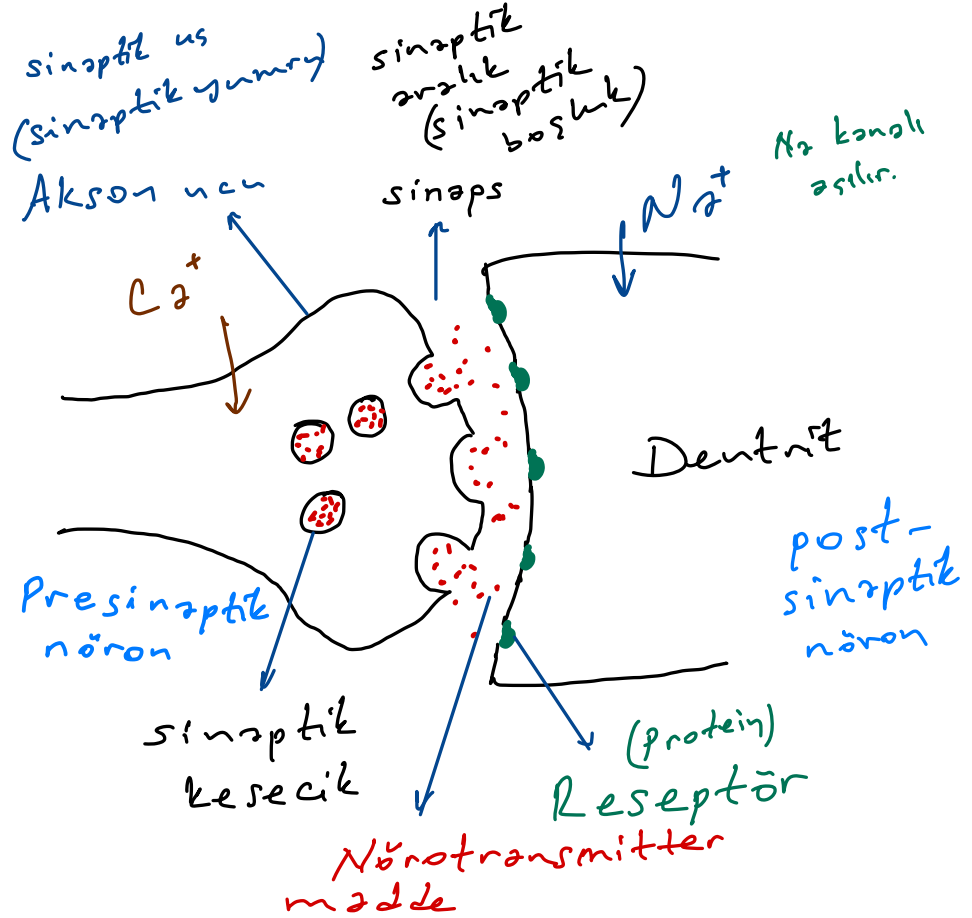 sinaptik uç
(sinaptik yumru)
Akson ucu
sinaptik
aralık
(sinaptik
boşluk)
sinaps
Na⁺
Na kanalı
açılır.
Ca⁺
Dentrit
Presinaptik
nöron
post-
sinaptik
nöron
sinaptik
kesecik
(protein)
Reseptör
Nörotransmitter
madde